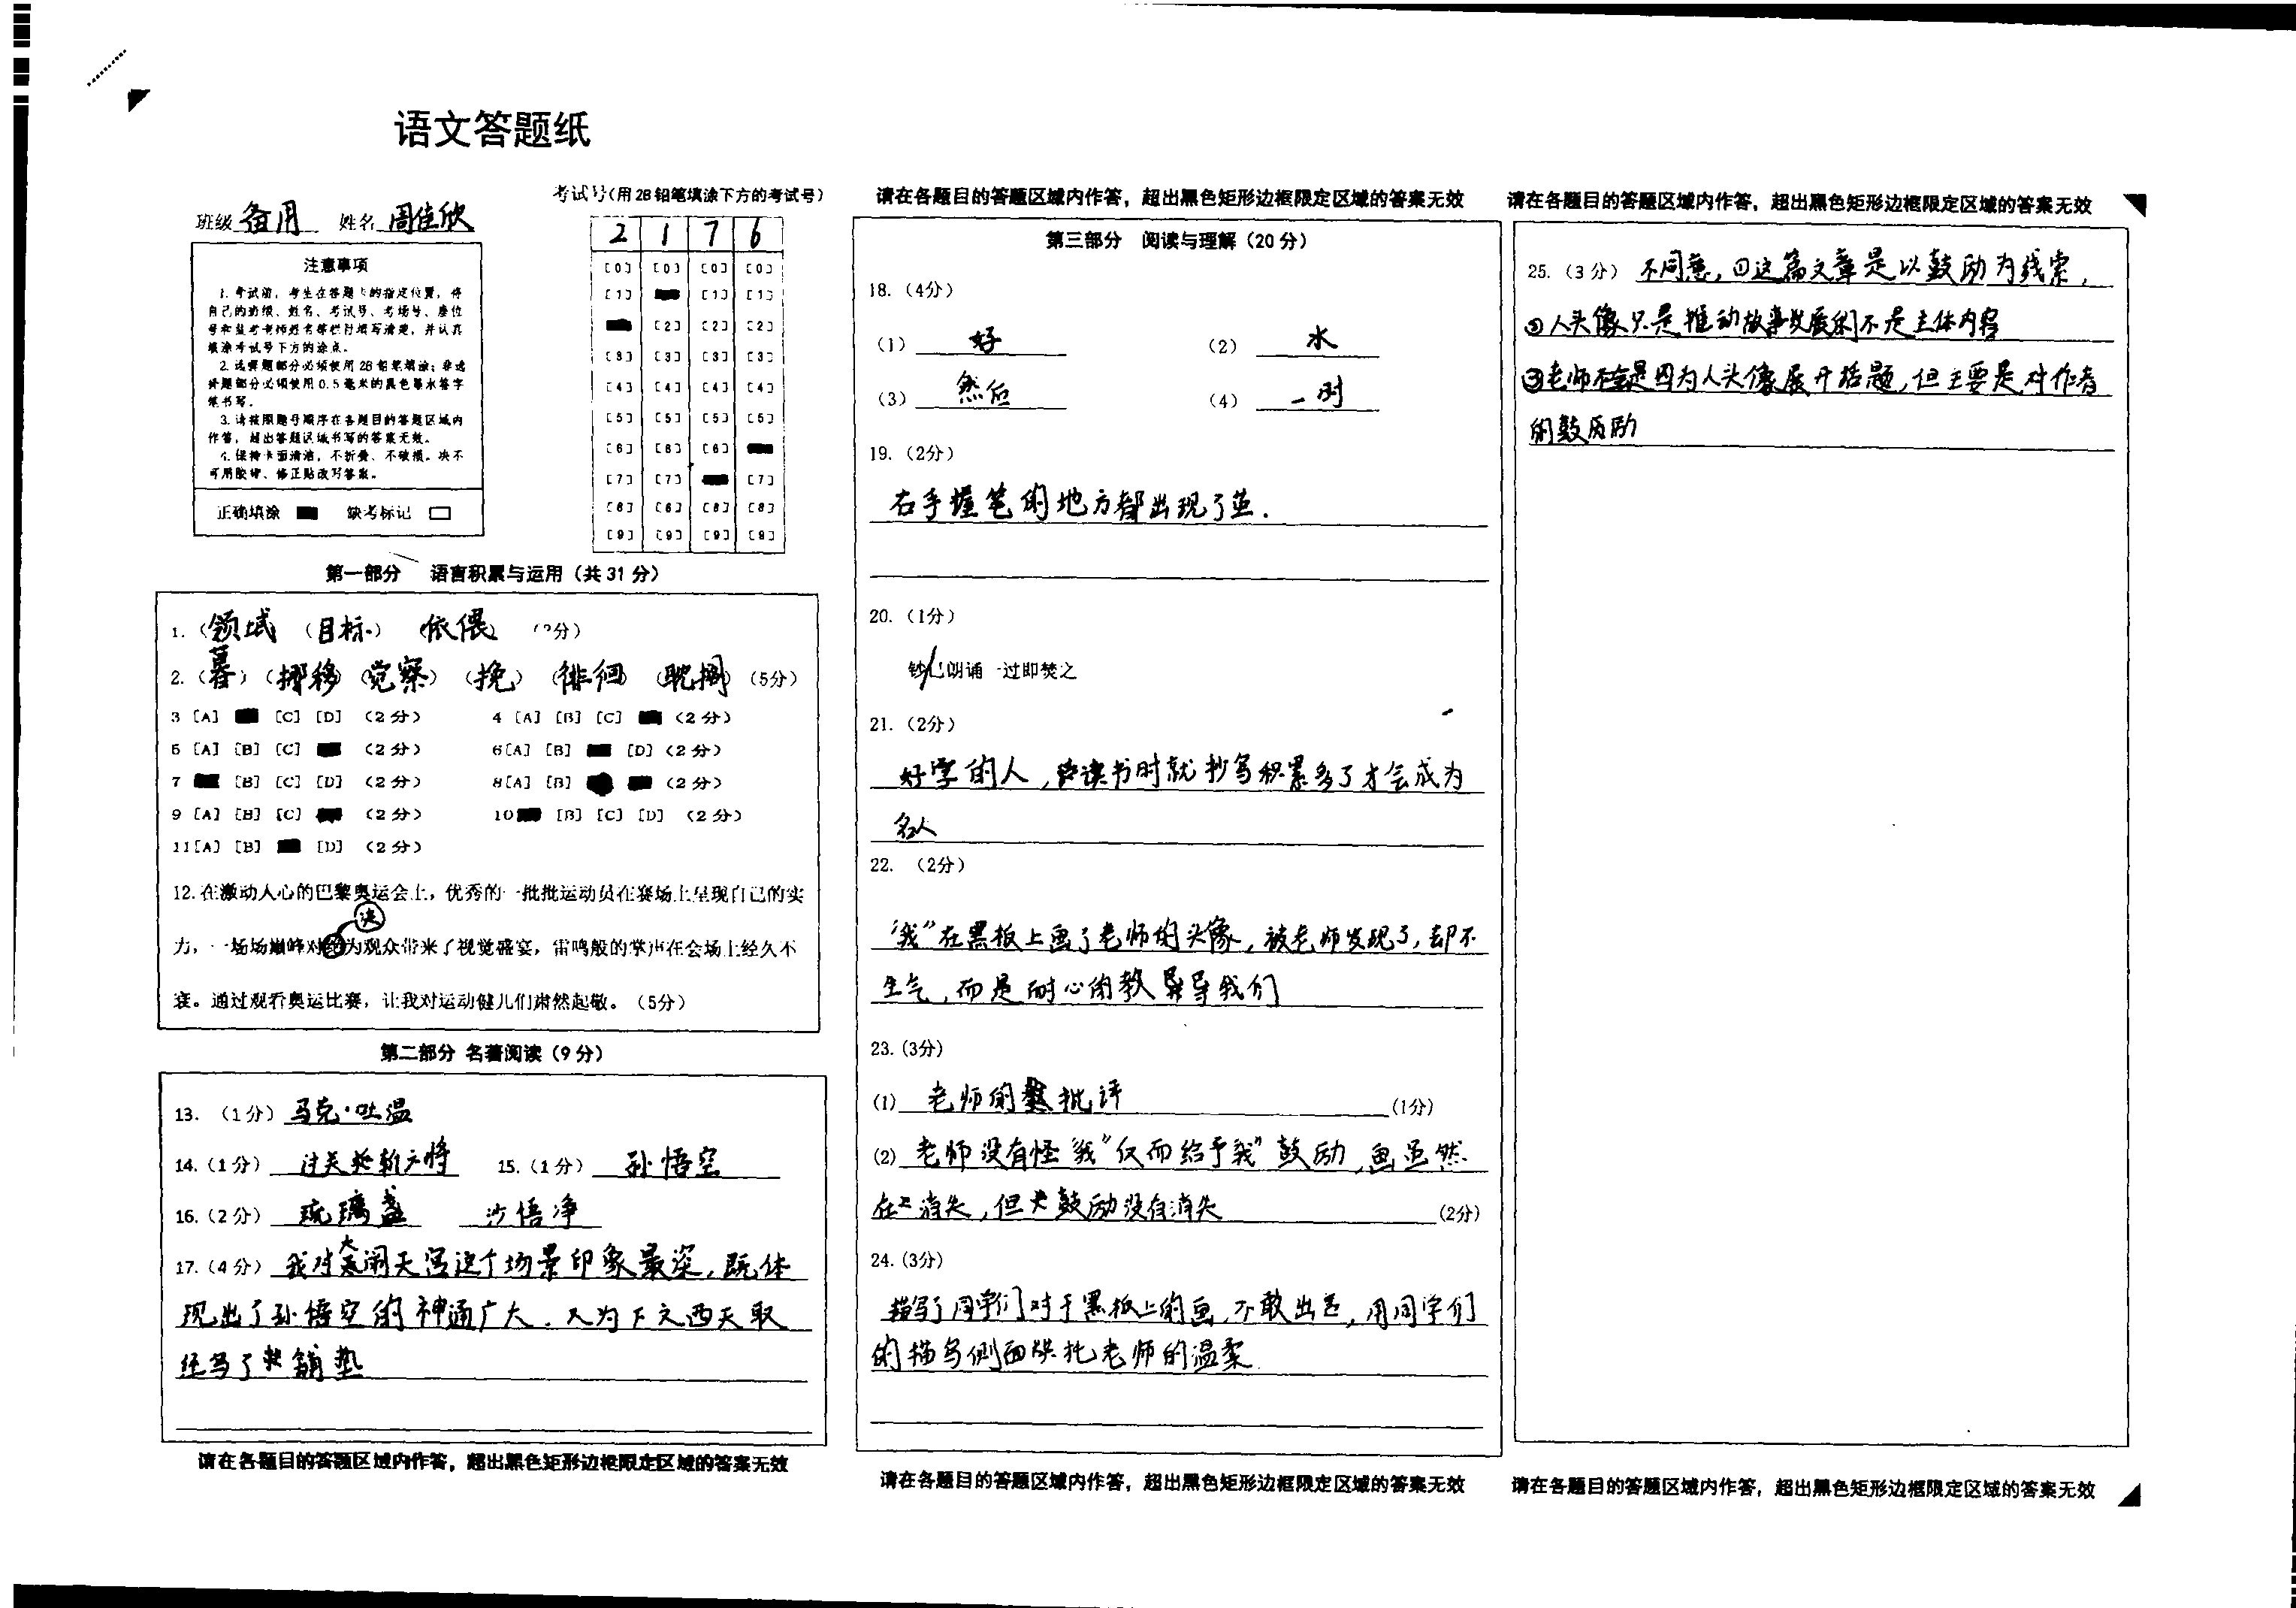 语文答题纸
班级 备用 姓名 周佳欣
考试号(用2B铅笔填涂下方的考试号)
2 1 7 6
[0] [0] [0] [0]
[1] [1] [1]
[2] [2] [2]
[3] [3] [3] [3]
[4] [4] [4] [4]
[5] [5] [5] [5]
[6] [6] [6]
[7] [7] [7]
[8] [8] [8] [8]
[9] [9] [9] [9]
注意事项
1. 考试前,考生在答题卡的指定位置,将
自己的班级、姓名、考试号、考场号、座位
号和监考老师姓名等栏目填写清楚,并认真
填涂考试号下方的涂点。
2. 选择题部分必须使用2B铅笔填涂;非选
择题部分必须使用0.5毫米的黑色墨水签字
笔书写。
3. 请按照题号顺序在各题目的答题区域内
作答,超出答题区域书写的答案无效。
4. 保持卡面清洁,不折叠、不破损。决不
可用胶带、修正贴改写答案。
正确填涂 缺考标记
第一部分 语言积累与运用(共31分)
1.(领域 (目标) 依偎 (2分)
2.(暮)(挪移)(觉察)(挽)(徘徊)(耽搁)(5分)
3 [A] [C] [D] (2分) 4 [A] [B] [C] (2分)
5 [A] [B] [C] (2分) 6[A] [B] [D] (2分)
7 [B] [C] [D] (2分) 8[A] [B] (2分)
9 [A] [B] [C] (2分) 10 [B] [C] [D] (2分)
11[A] [B] [D] (2分)
12.在激动人心的巴黎奥运会上,优秀的一批批运动员在赛场上呈现自己的实
决
力,一场场巅峰对 为观众带来了视觉盛宴,雷鸣般的掌声在会场上经久不
衰。通过观看奥运比赛,让我对运动健儿们肃然起敬。(5分)
第二部分 名著阅读(9分)
13.(1分)马克·吐温
14.(1分) 过关斩六将 15.(1分) 孙悟空
16.(2分) 琉璃盏 沙悟净
17.(4分) 我对大闹天宫这个场景印象最深,既体
现出了孙悟空的神通广大.又为下文西天取
经写了铺垫
请在各题目的答题区域内作答,超出黑色矩形边框限定区域的答案无效
请在各题目的答题区域内作答,超出黑色矩形边框限定区域的答案无效
第三部分 阅读与理解(20分)
18.(4分)
(1) 好 (2) 水
(3) 然后 (4) 一时
19.(2分)
右手握笔的地方都出现了茧.
20.(1分)
钞/已朗诵一过即焚之
21.(2分)
好学的人,读书时就抄写积累多了才会成为
名人
22.(2分)
"我"在黑板上画了老师的头像,被老师发现了,却不
生气,而是耐心的教导我们
23.(3分)
(1) 老师的批评 (1分)
(2) 老师没有怪"我"仅而给予"我"鼓励,画虽然
在消失,但鼓励没有消失 (2分)
24.(3分)
描写了同学们对于黑板上的画,不敢出声,用同学们
的描写侧面烘托老师的温柔
请在各题目的答题区域内作答,超出黑色矩形边框限定区域的答案无效
请在各题目的答题区域内作答,超出黑色矩形边框限定区域的答案无效
25.(3分) 不同意,①这篇文章是以鼓励为线索,
②人头像只是推动故事发展的不是主体内容
③老师是因为人头像展开话题,但主要是对作者
的鼓励
请在各题目的答题区域内作答,超出黑色矩形边框限定区域的答案无效